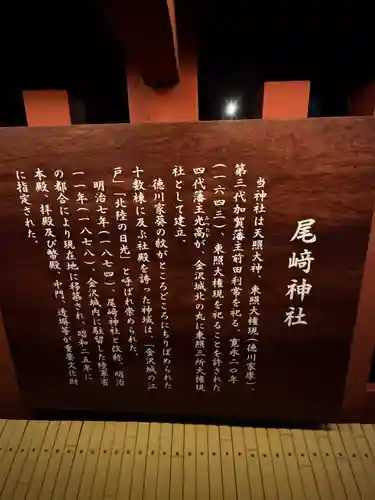 尾﨑神社
当神社は天照大神、東照大権現(徳川家康)、
第三代加賀藩主前田利常を祀る。寛永二〇年
(一六四三)、東照大権現を祀ることを許された
四代藩主光高が、金沢城北の丸に東照三所大権現
社として建立。
徳川家葵の紋がところどころにちりばめられた
十数棟に及ぶ社殿を誇った神域は、「金沢城の江
戸」「北陸の日光」と呼ばれ崇められた。
明治七年(一八七四)、尾﨑神社と改称。明治
一一年(一八七八)、金沢城内に駐留した陸軍省
の都合により現在地に移築され、昭和二五年に
本殿、拝殿及び幣殿、中門、透塀等が重要文化財
に指定された。